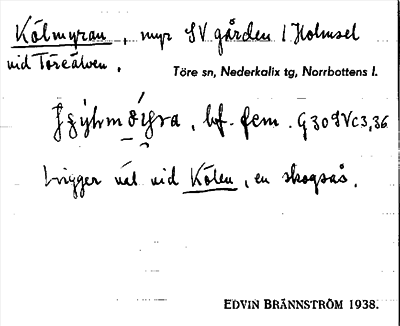 Kölmyran, myr SV gården i Holmsel
vid Töreälven.
Töre sn, Nederkalix tg, Norrbottens l.
, bf. fem. G309Vc3,36
Ligger väl vid Kölen, en skogsås.
EDVIN BRÄNNSTRÖM 1938.